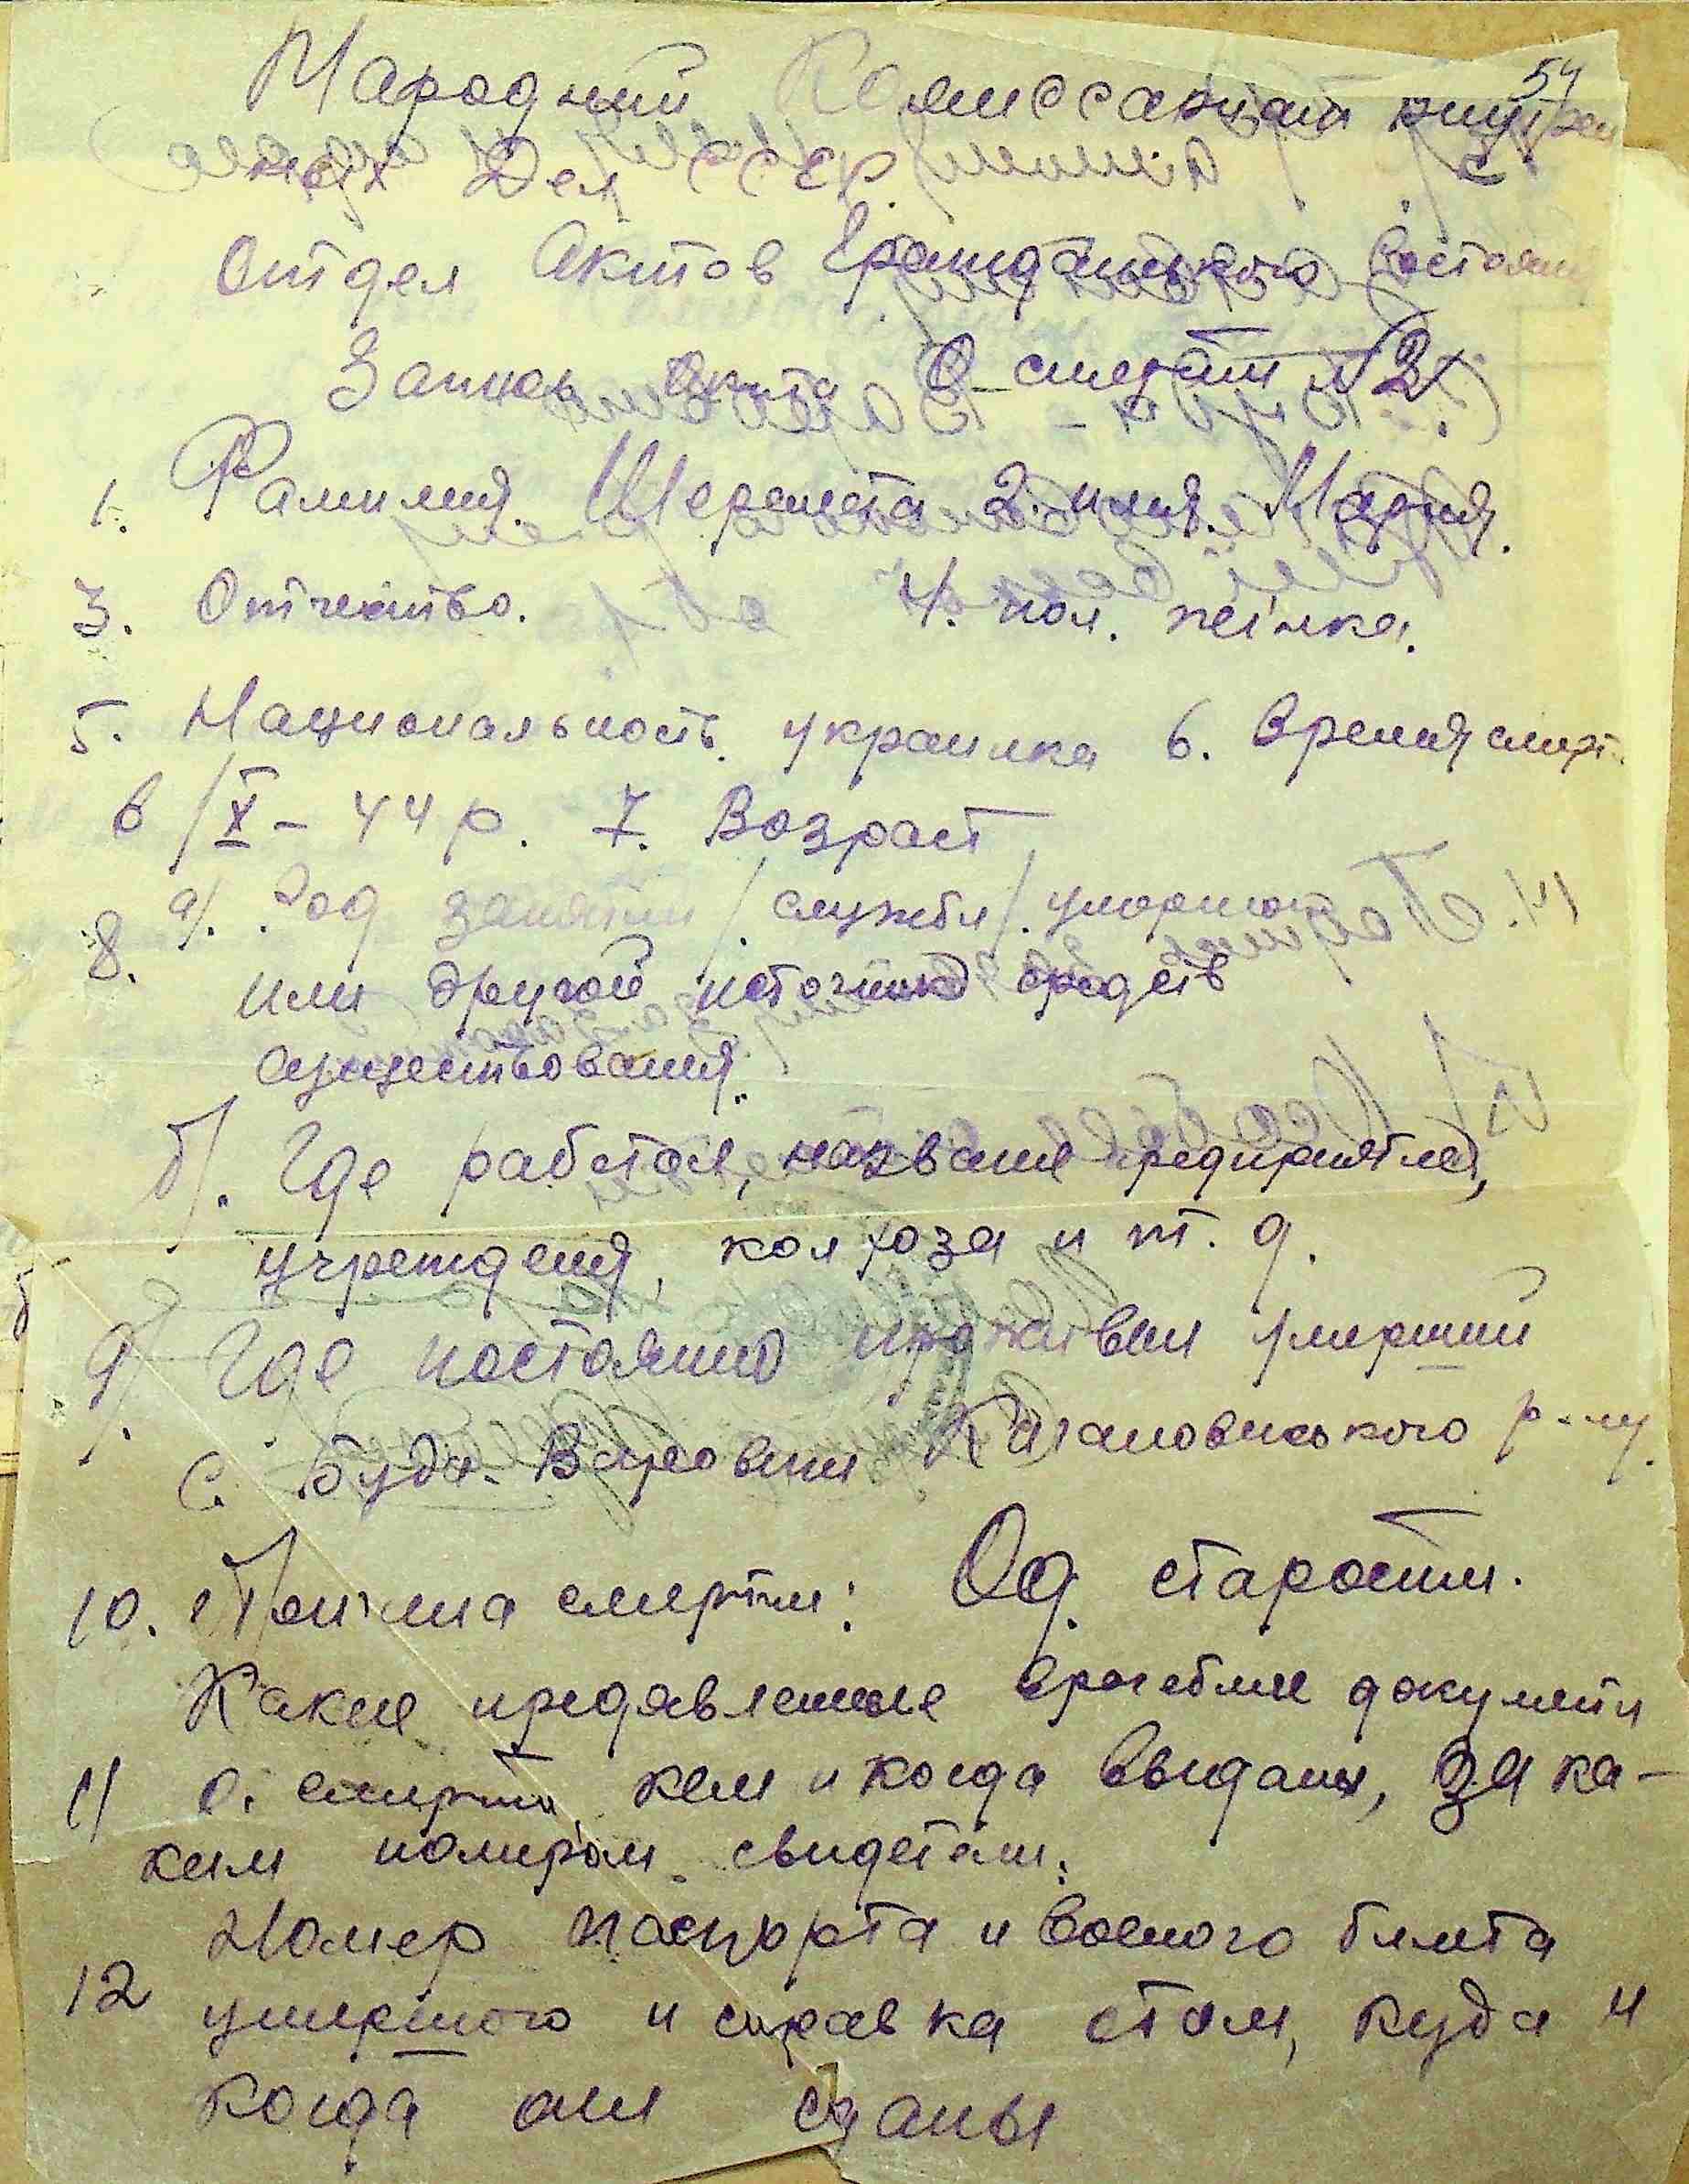 54
Народний Комиссариат внутрен
них Дел СССР.
Отдел Актов Гражданського Состояни
Запись Акта О смерти № 2
1. Фамилия. Шерстета 2. имя. Мария.
3. Отчество. 4. пол. жінка.
5. Национальность. украинка 6. Время смерт.
6/X - 44 р. 7. Возраст
8. а/. Род занятий /службы/. умершого
или другой источник средств
существования.
б/. Где работал, название предприятия,
учреждения, колхоза и т. д.
9/. Где постоянно проживал умерший
с. Буда-Варовичи Кагановичського р-ну.
10. Причина смерти: Од старости.
Какие предявленные врачебные документи
11 о смерти, кем и когда выданы, за ка-
ким номером свидетели.
Номер паспорта и военого билета
12 умершого и справка о том, куда и
когда они сданы